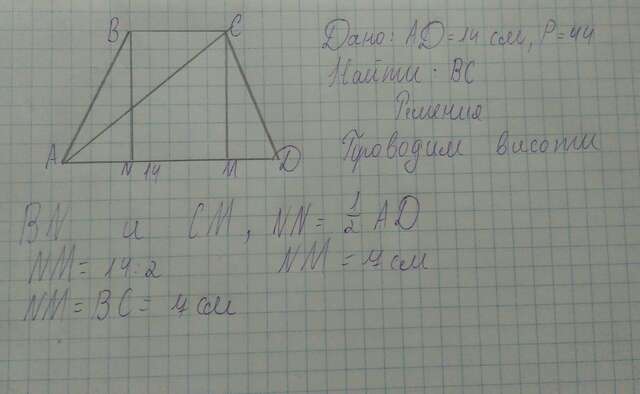 B C
Дано: AD=14 см, P=44
Найти: BC
Решения
A N 14 M D
Проводим висоти
BN и CM, NN = 1/2 AD
NM = 14:2 NM = 7 см
NM = BC = 7 см